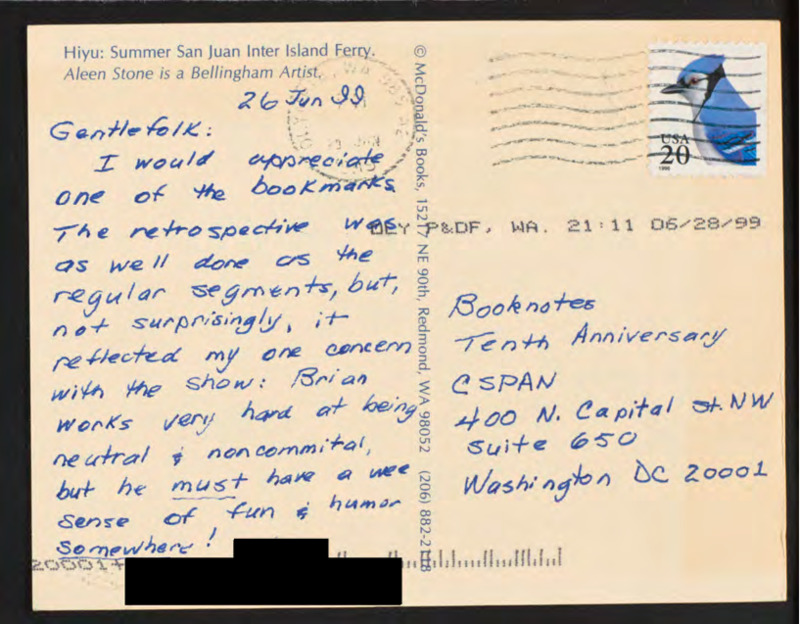 Hiyu: Summer San Juan Inter Island Ferry.
Aleen Stone is a Bellingham Artist.
26 Jun 99
Gentlefolk:
I would appreciate
one of the bookmarks.
The retrospective was
as well done as the
regular segments, but,
not surprisingly, it
reflected my one concern
with the show: Brian
works very hard at being
neutral & noncommital,
but he must have a wee
sense of fun & humor
somewhere!
© McDonald's Books, 15217 NE 90th, Redmond, WA 98052 (206) 882-2118
USA
20
1996
P&DF, WA. 21:11 06/28/99
Booknotes
Tenth Anniversary
CSPAN
400 N. Capital St. NW
Suite 650
Washington DC 20001